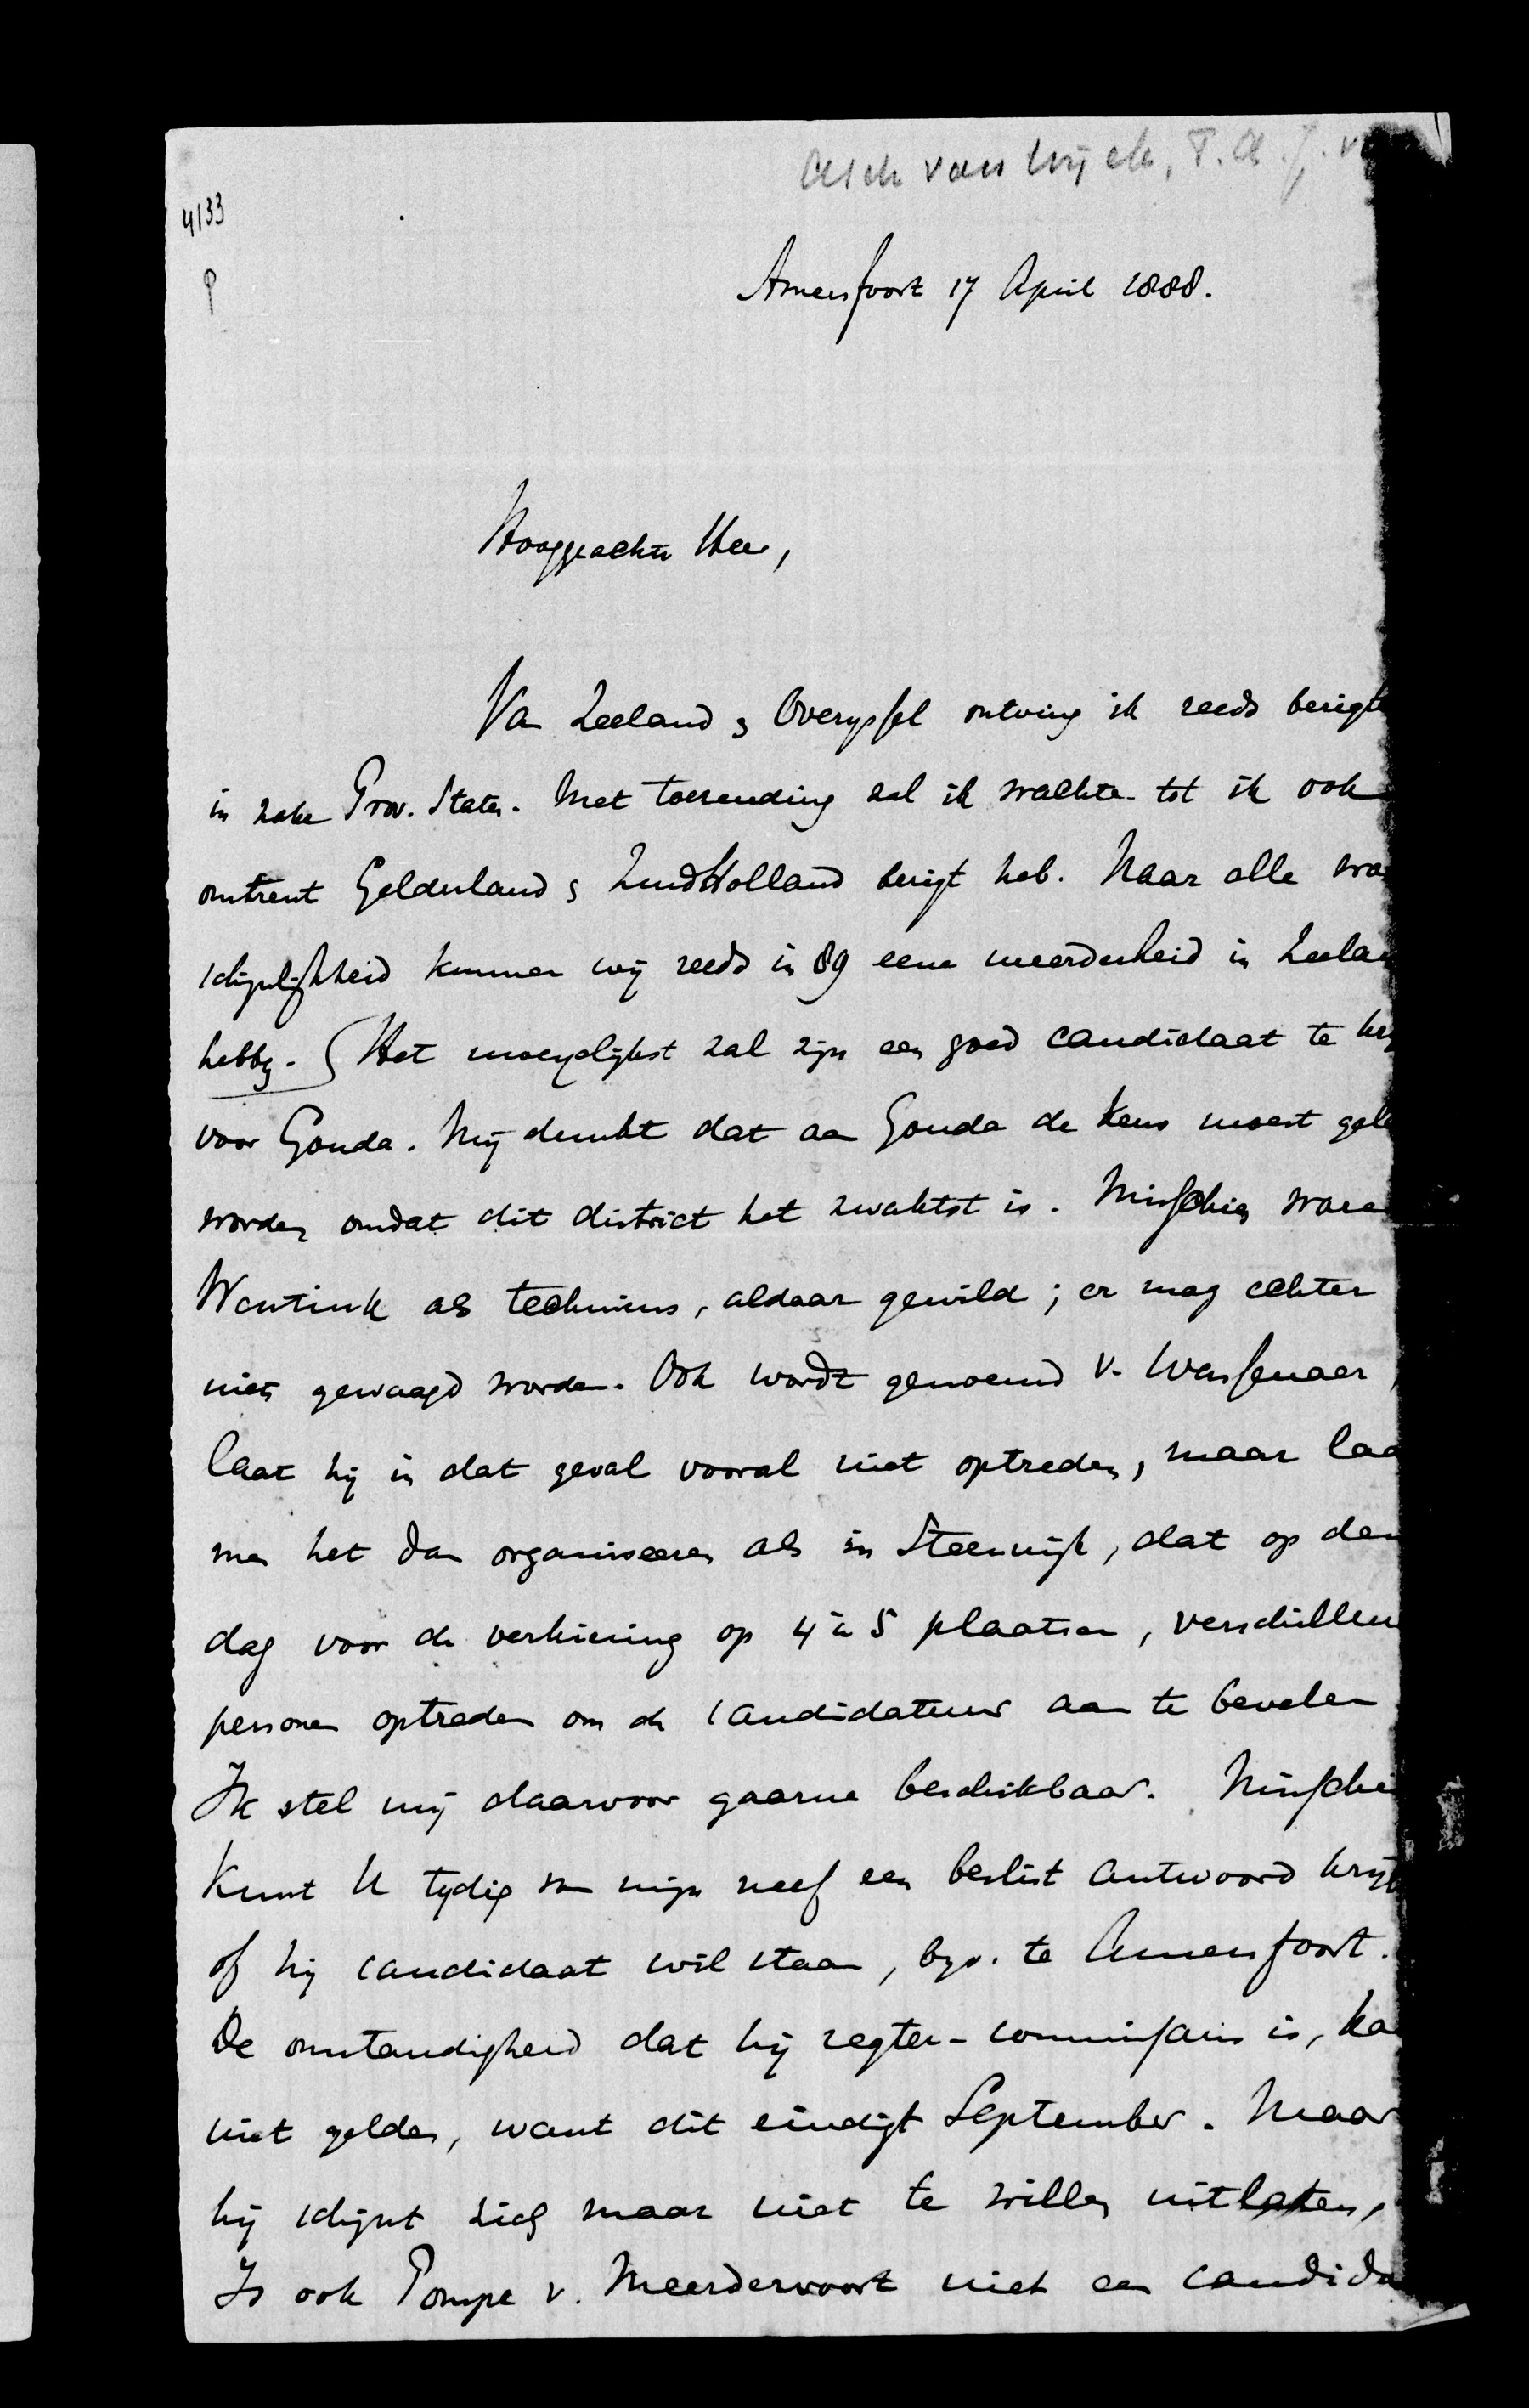 Asch van Wijck, T. A. J. v
4133
P
Amersfoort 17 April 1888.
Hooggeachte Heer,
Van Zeeland & Overyssel ontving ik reeds berigte
in zake Prov. Staten. Met toezending zal ik wachten tot ik ook
omtrent Gelderland & ZuidHolland berigt heb. Naar alle waar
schijnlijkheid kunnen wij reeds in 89 eene meerderheid in Zeelan
hebben. Het moeyelijkst zal zijn een goed candidaat te krij
voor Gouda. Mij dunkt dat aan Gouda de keus moest gela
worden omdat dit district het zwakst is. Misschien ware
Wentink als technicus, aldaar gewild; er mag echter
niets gewaagd worden. Ook wordt genoemd v. Wassenaer,
laat hij in dat geval vooral niet optreden, maar laa
men het dan organiseeren als in Steenwijk, dat op den
dag voor de verkiezing op 4 à 5 plaatsen, verschillen
personen optreden om de candidatuur aan te bevelen
Ik stel mij daarvoor gaarne beschikbaar. Misschie
kunt U tydig van mijn neef een beslist antwoord krijg
of hij candidaat wil staan, byv. te Amersfoort.
De omstandigheid dat hij regter-commissaris is, ka
niet gelden, want dit eindigt September. Maar
hij schijnt zich maar niet te willen uitlaten,
Is ook Pompe v. Meerdervoort niet een candida